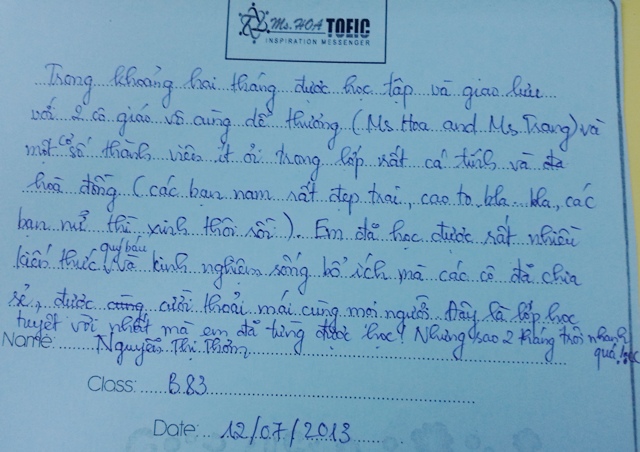 Ms. HOA TOEIC
INSPIRATION MESSENGER
Trong khoảng hai tháng được học tập và giao lưu
với 2 cô giáo vô cùng dễ thương (Ms Hoa and Ms Trang) và
một số thành viên ít ỏi trong lớp rất cá tính và
hoà đồng (các bạn nam rất đẹp trai, cao to, bla..bla, các
bạn nữ thì xinh thôi rồi). Em đã học được rất nhiều
kiến thức quý báu và kinh nghiệm sống bổ ích mà các cô đã chia
sẻ, được cười thoải mái cùng mọi người. Đây là lớp học
tuyệt vời nhất mà em đã từng được học! Nhưng sao 2 tháng trôi nhanh
quá!
Name: Nguyễn Thị Thơm
Class: B.83
Date: 12/07/2013